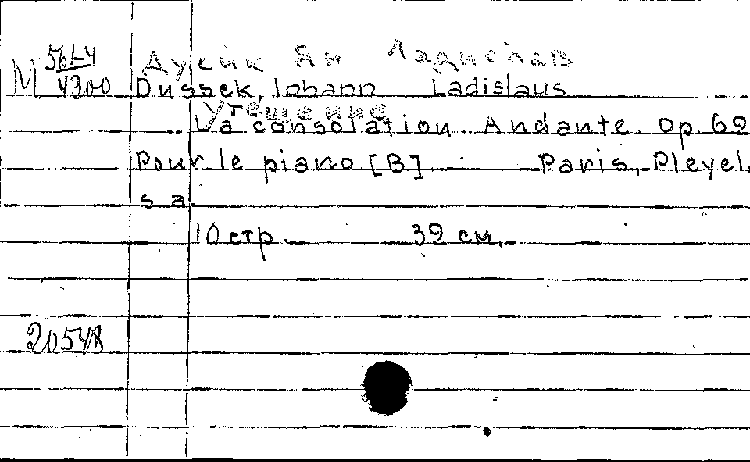 М 561-4
4300
Дусик Ян Ладислав
Dussek, Iohann Ladislaus
Утешение
La consolation. Andante. Op. 62
Pour le piano [B]. Paris, Pleyel,
s a.
10 стр. 32 см.